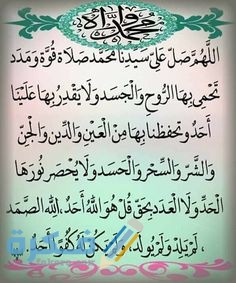 اللَّهُمَّ صَلِّ عَلَى سَيِّدِنَا مُحَمَّدٍ صَلَاةَ قُوَّةٍ وَمَدَدٍ
تَحْمِي بِهَا الرُّوحِ وَالْجَسَدِ وَلَا يَقْدِرُ بِهَا عَلَيْنَا
أَحَدٌ وَتحفظنا بِهَا مِنَ الْعَيْنِ وَالدِّينِ وَالْجِنِّ
وَالشَّرِّ وَالسِّحْرِ وَالْحَسَدِ وَلَا يُحْصَر نُورَهَا
الْحَدِّ وَلَا الْعَدَدِ بِحَقِّ قُلْ هُوَ اللَّهُ أَحَدٌ ، اللَّهُ الصَّمَد
، لَمْ يَلِدْ وَلَمْ يُولَدْ ، وَلَمْ يَكُنْ لَهُ كُفُوًا أَحَدٌ .
فكرة